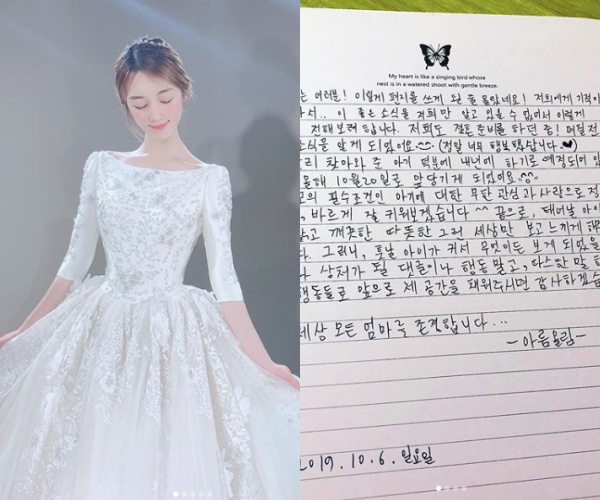 My heart is like a singing bird whose
nest is in a watered shoot with gentle breeze.
는 여러분! 이렇게 편지를 쓰게 될 줄 몰랐네요! 저희에게 기적이
와서.. 이 좋은 소식을 저희만 알고 있을 수 없어서 이렇게
전해보려 합니다. 저희도 결혼 준비를 하던 중! 며칠전
소식을 알게 되었어요 ^^ (정말 너무 행복했답니다.♥)
리 찾아와 준 아기 덕분에 내년에 하기로 예정되어 있
올해 10월 20일로 앞당기게 되었어요 ^^
의 필수조건인 아기에 대한 무한 관심과 사랑으로
, 바르게 잘 키워보겠습니다 ^^ 끝으로, 태어날 아이
맑고 깨끗한 따뜻한 그런 세상만 보고 느끼게 해
다. 그러니, 훗날 아이가 커서 무엇이든 보게 되었을
나 상처가 될 댓글이나 행동 말고, 따스한 말
행동들로 앞으로 제 공간을 채워주시면 감사하겠습
세상 모든 엄마를 존경합니다...
-아름올림-
2019. 10. 6. 일요일